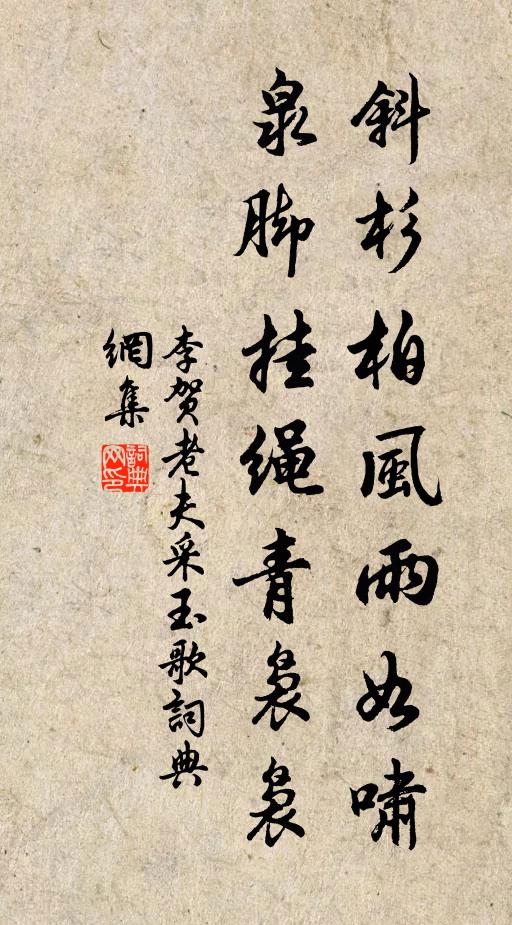 斜杉柏風雨如嘯
泉脚挂繩青裊裊
李贺老夫采玉歌詞典
網集
詞典
网印